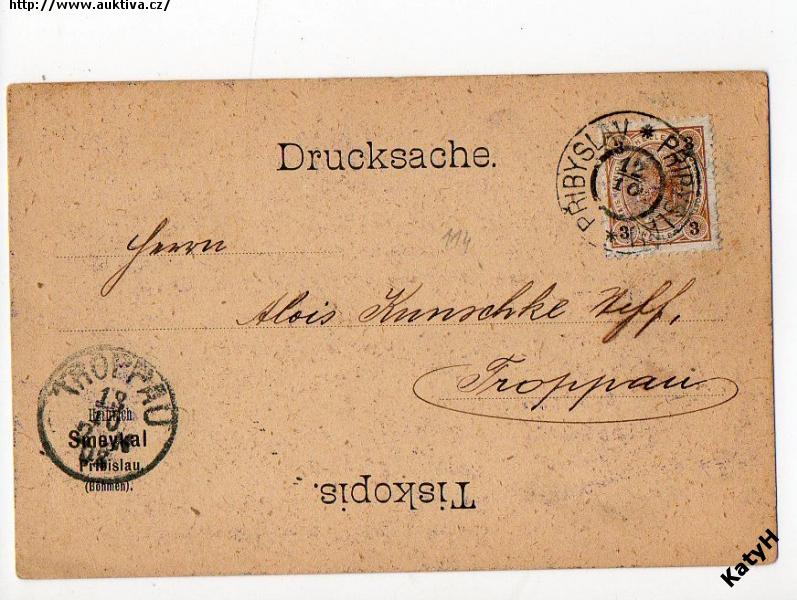 http://www.auktiva.cz/
Drucksache.
PŘIBYSLAV * PŘIBYSLAV *
12
3 3
Herrn
114
Alois Kunschke Neff,
Troppau
TROPPAU
13
Heinrich
Smeykal
Přibislau,
(Böhmen).
Tiskopis.
KatyH